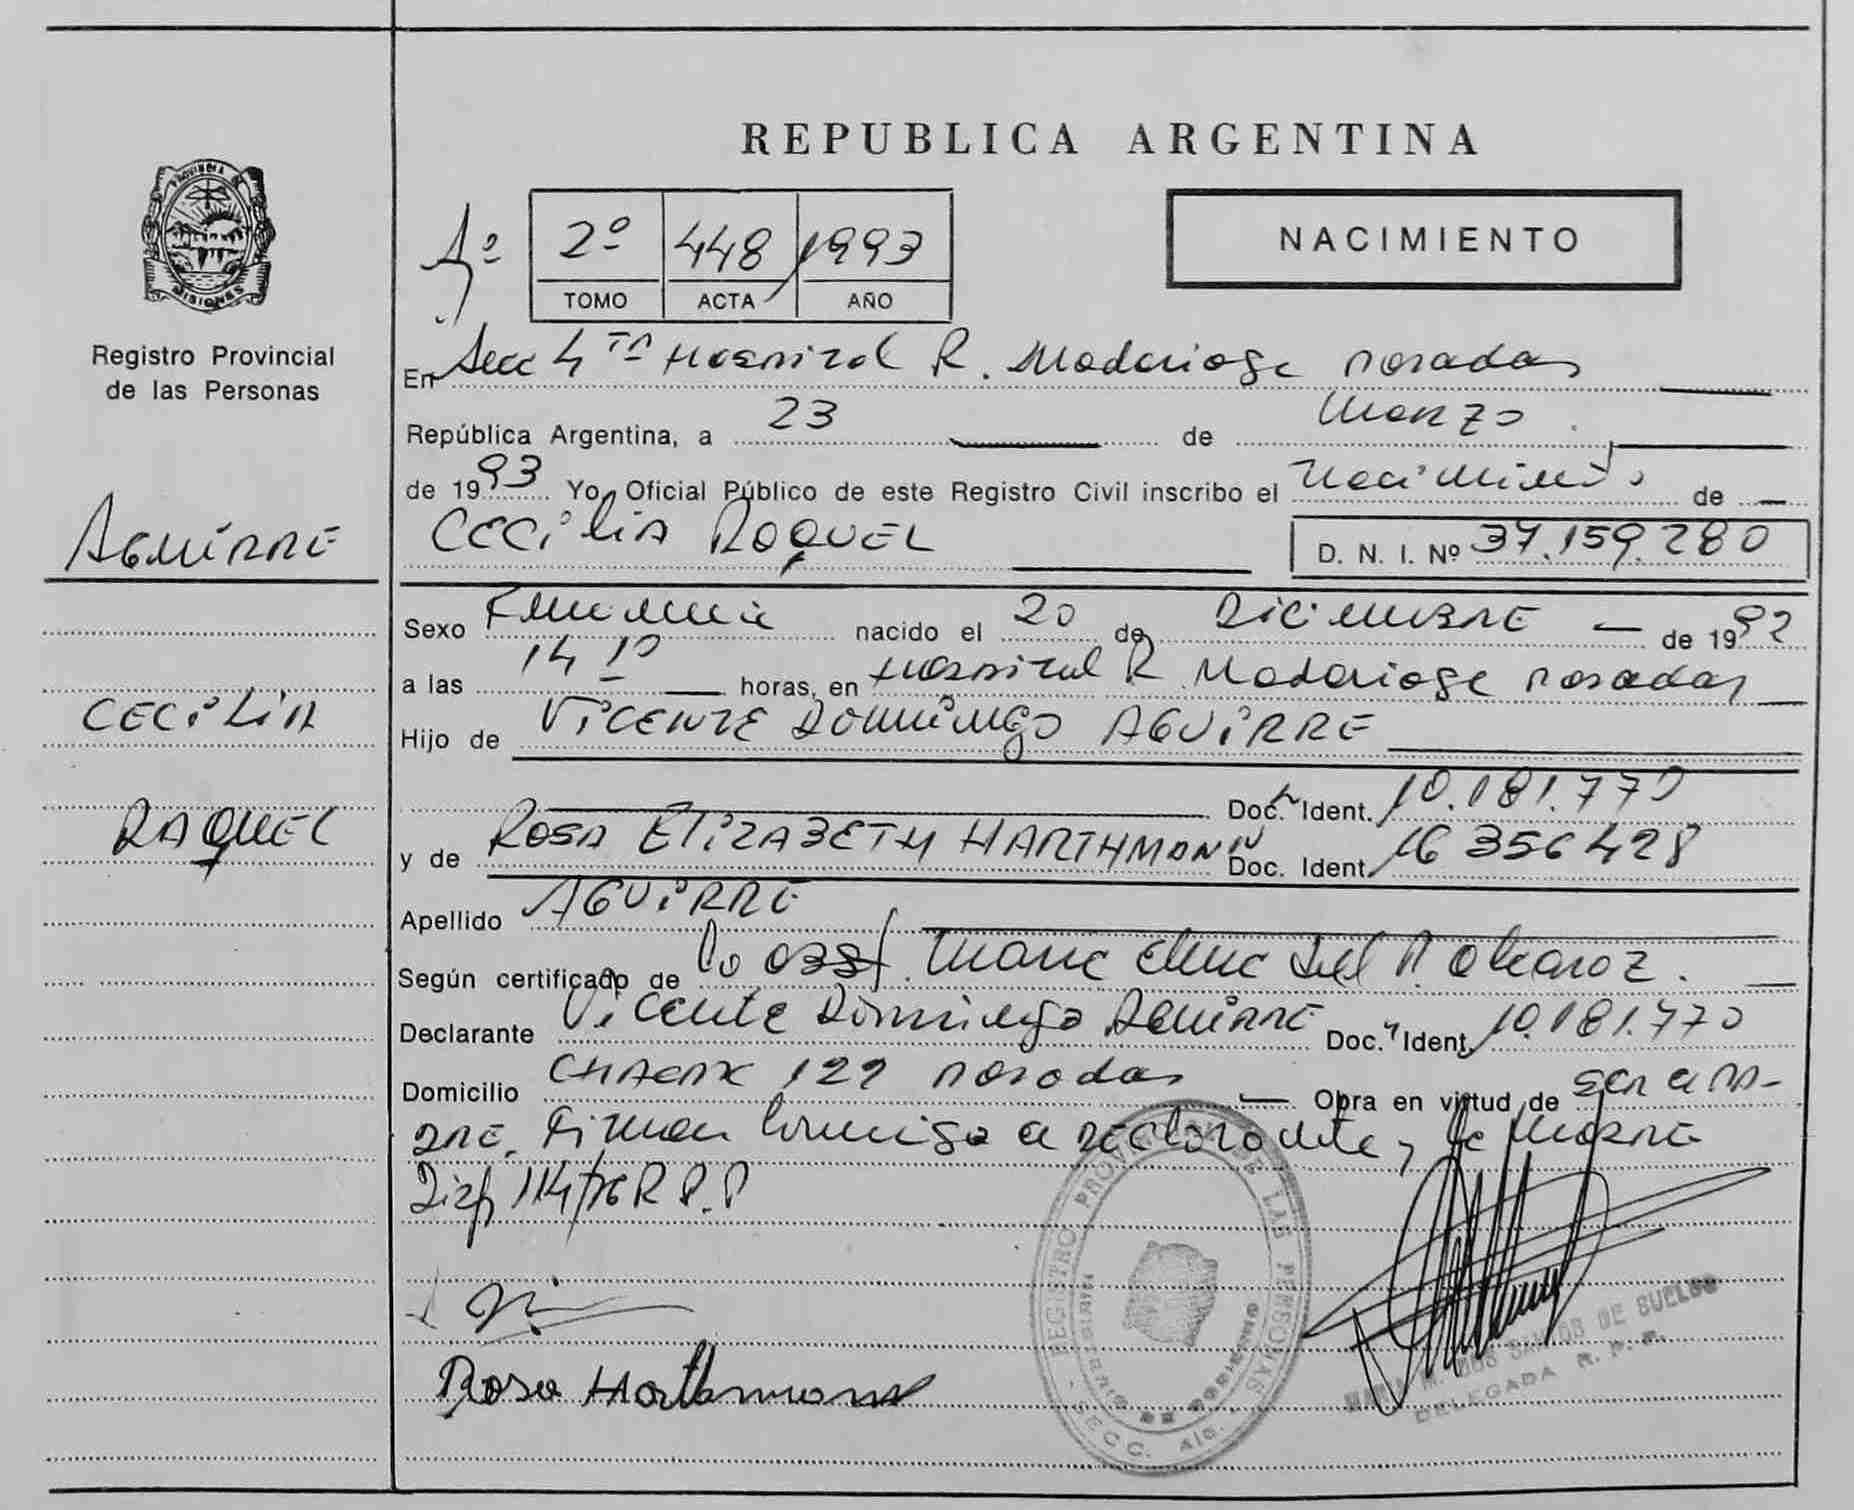 REPUBLICA ARGENTINA
PROVINCIA DE MISIONES
Registro Provincial
de las Personas
2º 448 1993
TOMO ACTA AÑO
NACIMIENTO
En Secc 4ta Hospital R. Madariaga Posadas
República Argentina, a 23 de Marzo
de 1993 Yo, Oficial Público de este Registro Civil inscribo el Nacimiento de
AGUIRRE
CECILIA RAQUEL D. N. I. Nº 37.159.280
Sexo Femenino nacido el 20 de DICIEMBRE de 1992
a las 14 10 horas, en Hospital R. Madariaga Posadas
CECILIA
Hijo de VICENTE DOMINGO AGUIRRE
Doc. Ident. 10.181.770
RAQUEL
y de ROSA ELIZABETH HARTHMANN Doc. Ident. 16 356 428
Apellido AGUIRRE
Según certificado de la Obst. Maria Elena Del
Declarante Vicente Domingo AGUIRRE Doc. Ident. 10.181.770
Domicilio CHACRA 122 Posadas Obra en virtud de SER EL PA-
DRE. Firman Conmigo el declarante y la MADRE
Disp 114/76 R.P.P
Rosa Harthmann
REGISTRO PROVINCIAL DE LAS PERSONAS
MINISTERIO DE GOBIERNO
SECC.
DE SUELDO
DELEGADA R. P. P.